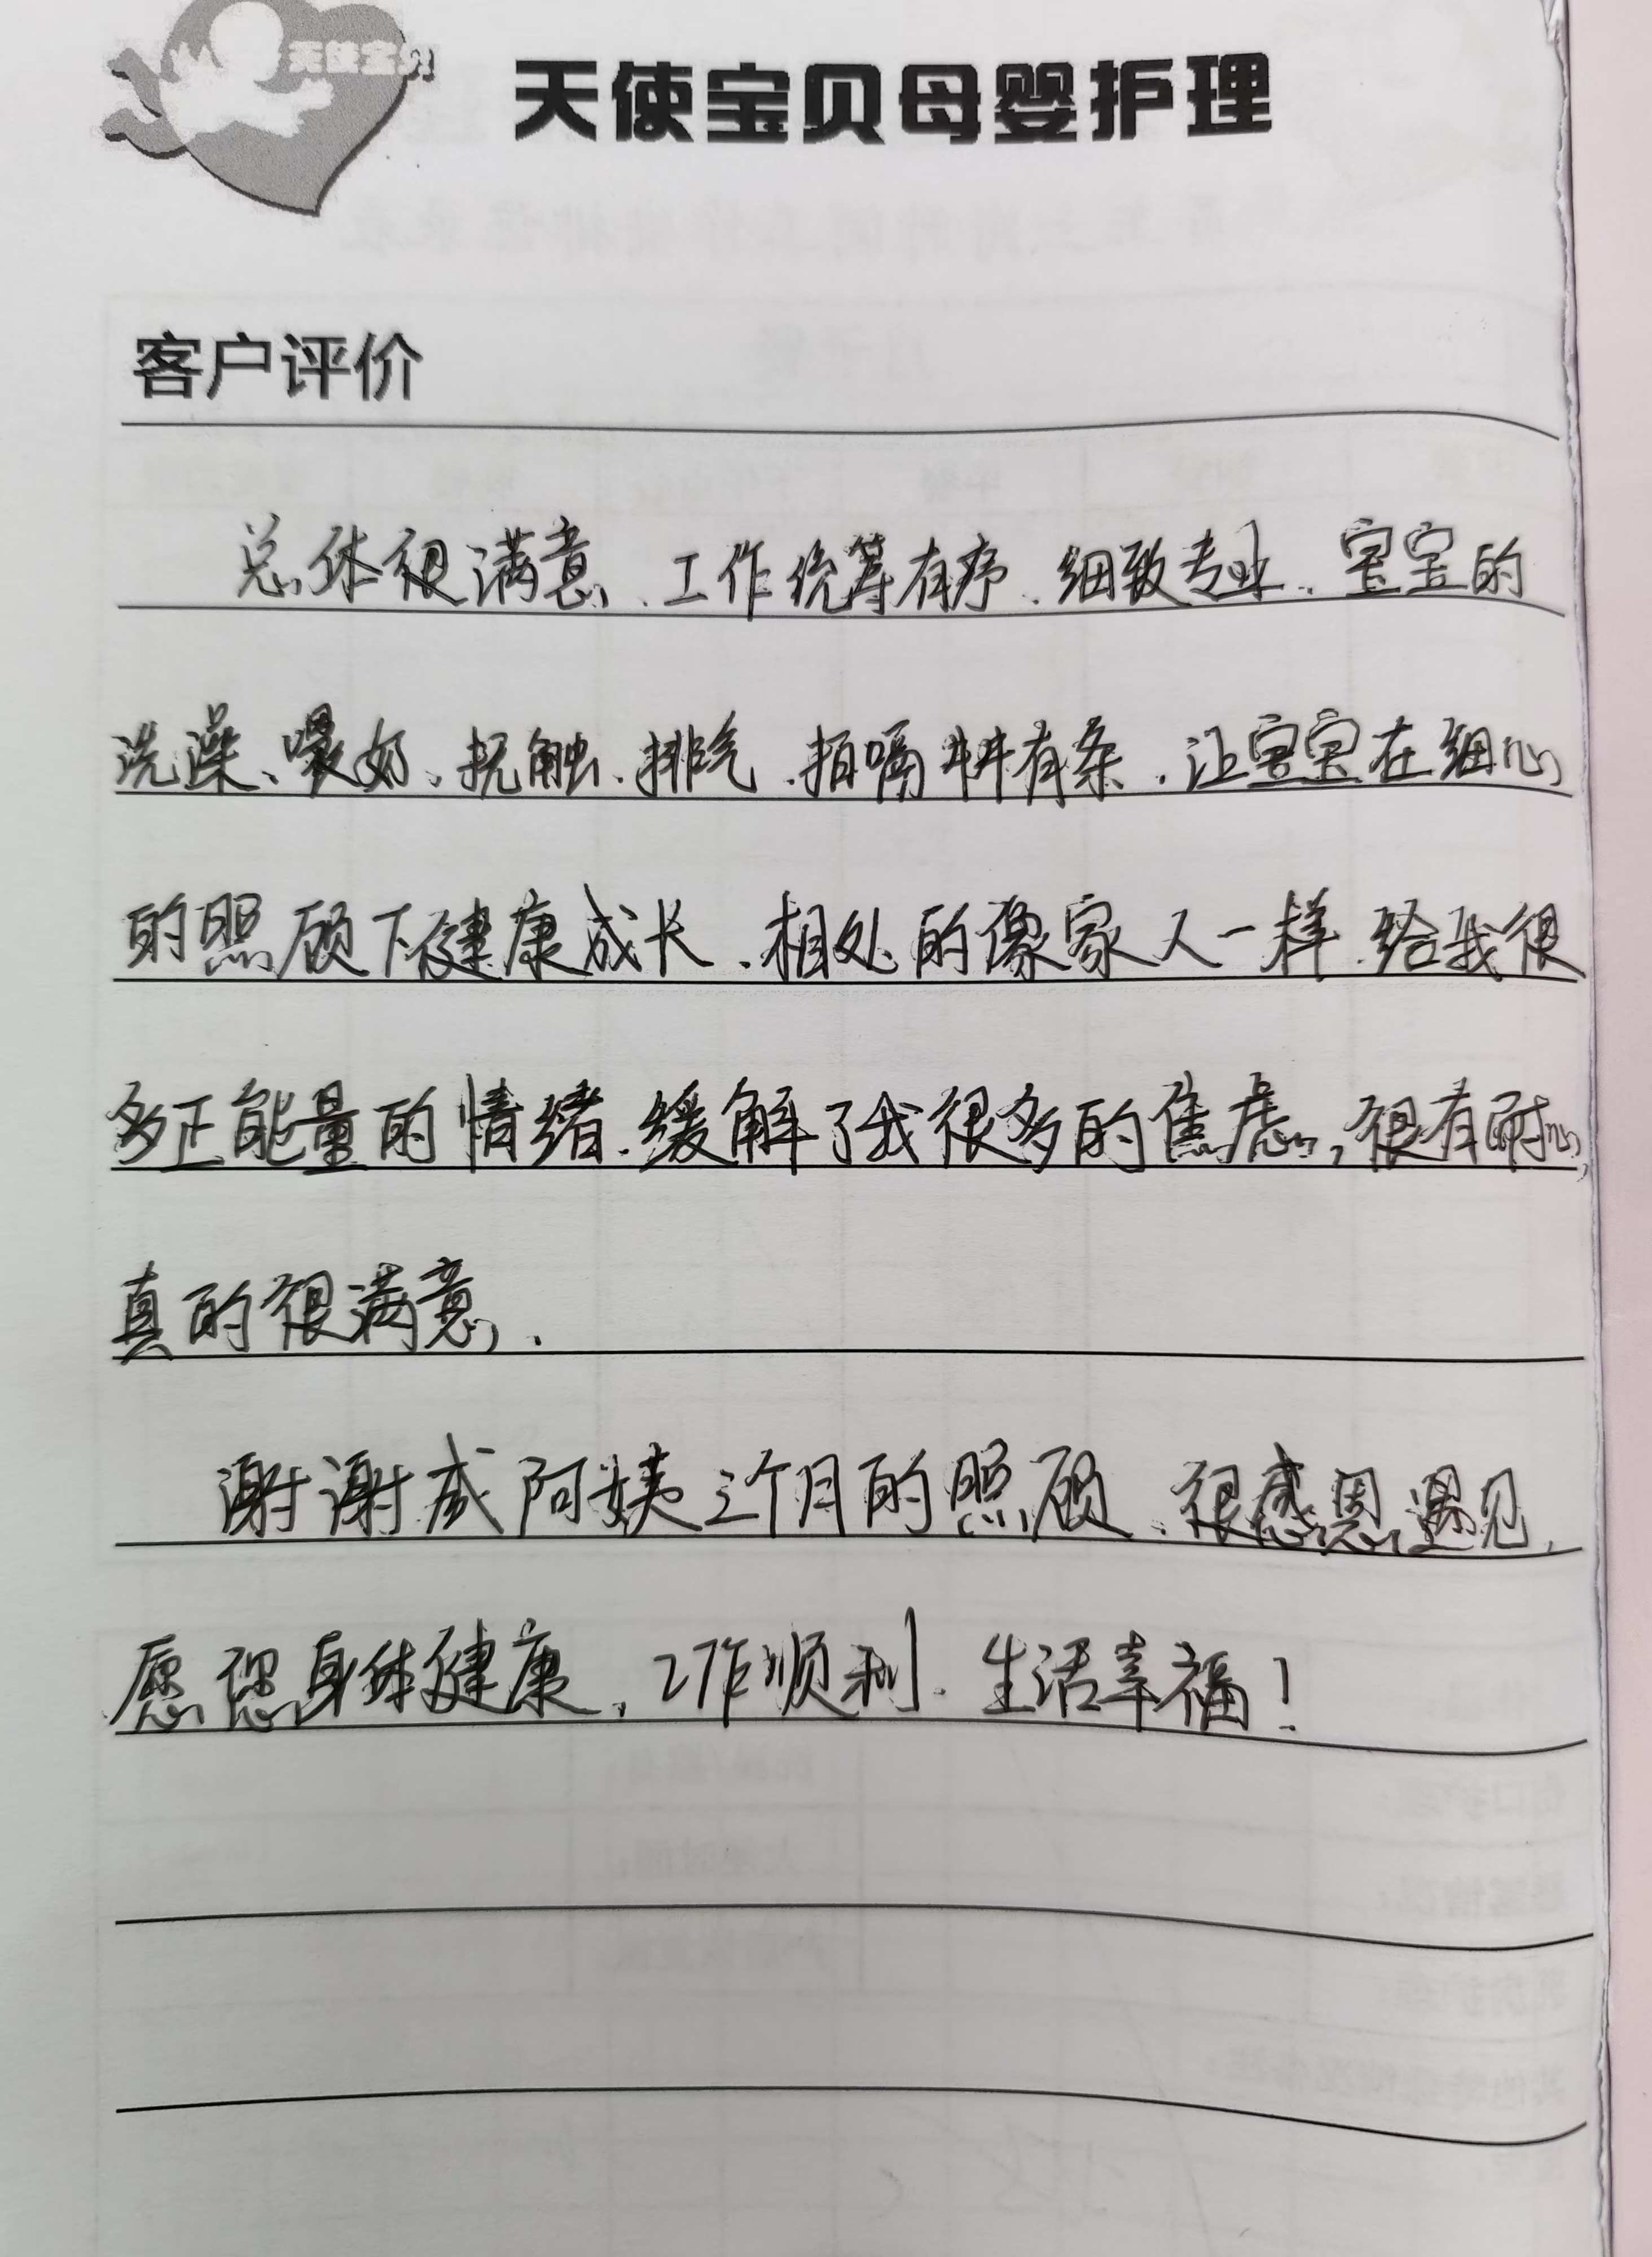 天使宝贝
天使宝贝母婴护理
客户评价
总体很满意、工作统筹有序、细致专业、宝宝的
洗澡、喂奶、抚触、排气、拍嗝井井有条、让宝宝在细心
的照顾下健康成长、相处的像家人一样、给我很
多正能量的情绪、缓解了我很多的焦虑，很有耐心，
真的很满意、
谢谢成阿姨三个月的照顾、很感恩遇见，
愿您身体健康，工作顺利、生活幸福！